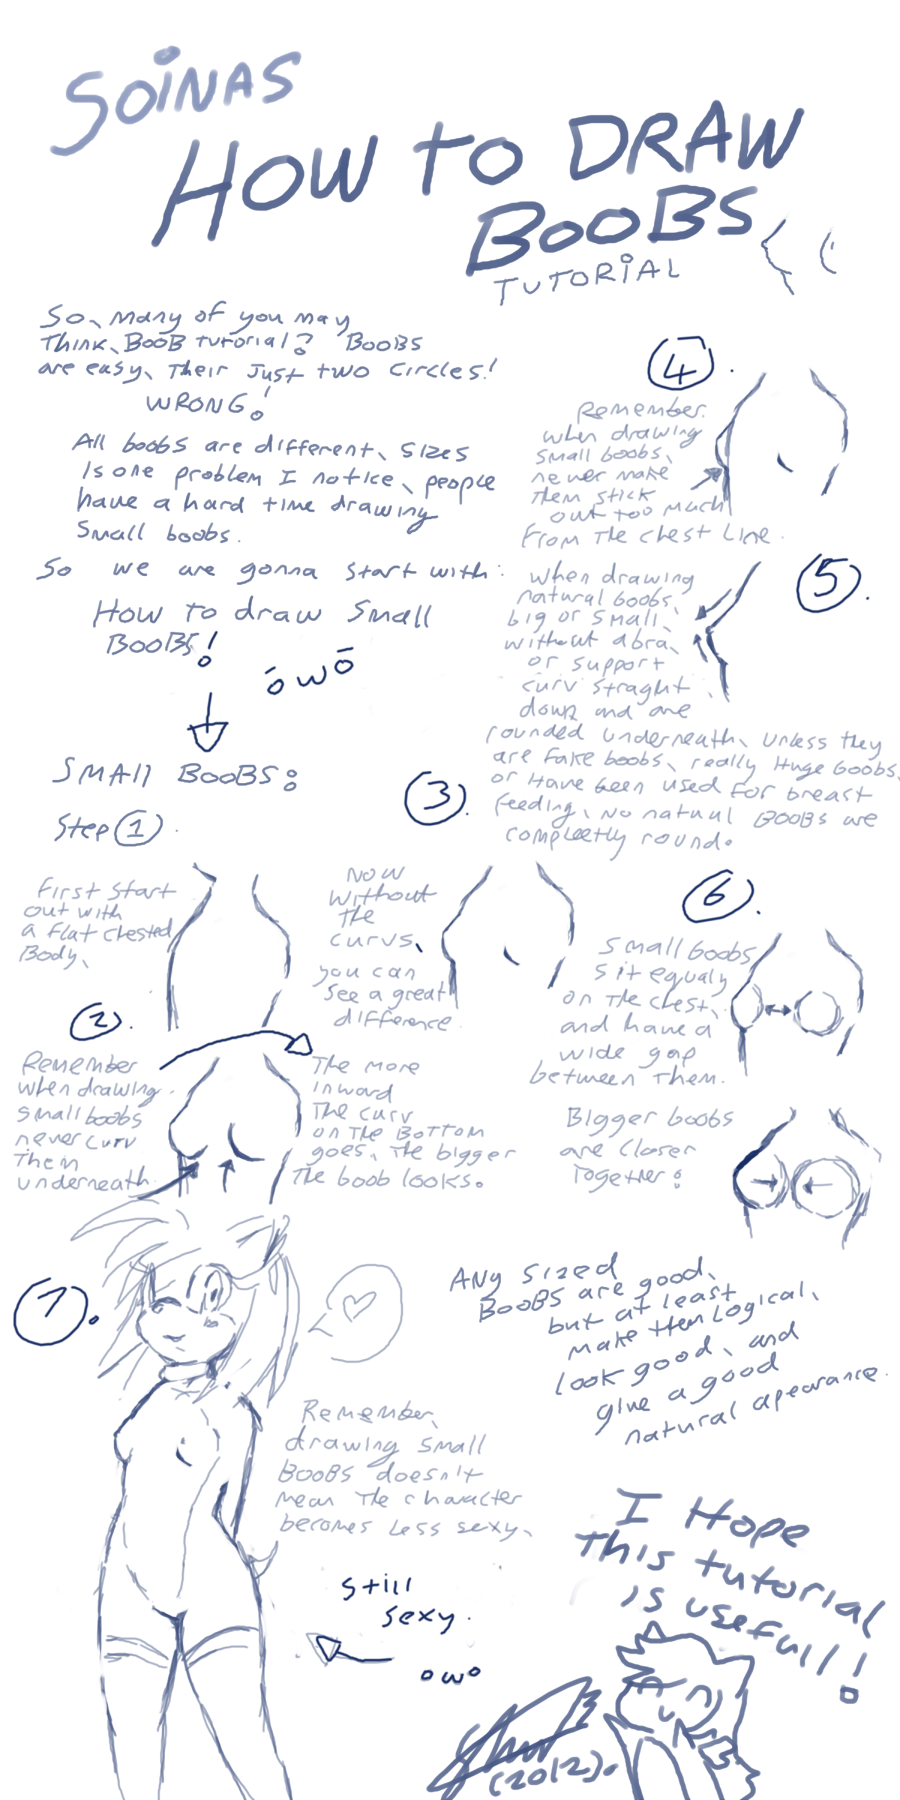 SOiNAS
HOW to DRAW
BOOBS
TUTORiAL
So, many of you may
Think, BOOB tutorial? BOOBS
are easy, Their Just two Circles!
WRONG!
All boobs are different, Sizes
Is one problem I notice, people
have a hard time drawing
Small boobs.
So we are gonna Start with:
How to draw Small
BOOBS!
ōwō
SMAll BOOBS:
Step 1.
First Start
out with
a Flat Chested
Body,
2.
Remember
when drawing
small boobs
never curv
Them
underneath.
The more
inward
The curv
on The Bottom
goes, The bigger
The boob looks.
3.
Now
Without
the
curvs,
you can
See a great
difference.
4.
Remember.
when drawing
small boobs,
never make
Them stick
out too much
From The Chest Line.
5.
when drawing
natural boobs,
big or small,
without a bra,
or support
curv straght
down and are
rounded underneath, Unless they
are Fake boobs, really Huge boobs,
or Have been used For breast
feeding, No natual BOOBs are
compleetly round.
6.
Small boobs
Sit equaly
on The Chest,
and have a
wide gap
between Them.
Bigger boobs
are Closer
Together:
7.
Remember,
drawing Small
BOOBS doesn't
mean The character
becomes Less sexy,
Still
sexy.
owo
ANy Sized
BOOBS are good,
but at least
make them Logical,
look good, and
give a good
natural apearance.
I Hope
This tutorial
is usefull!
(2012).